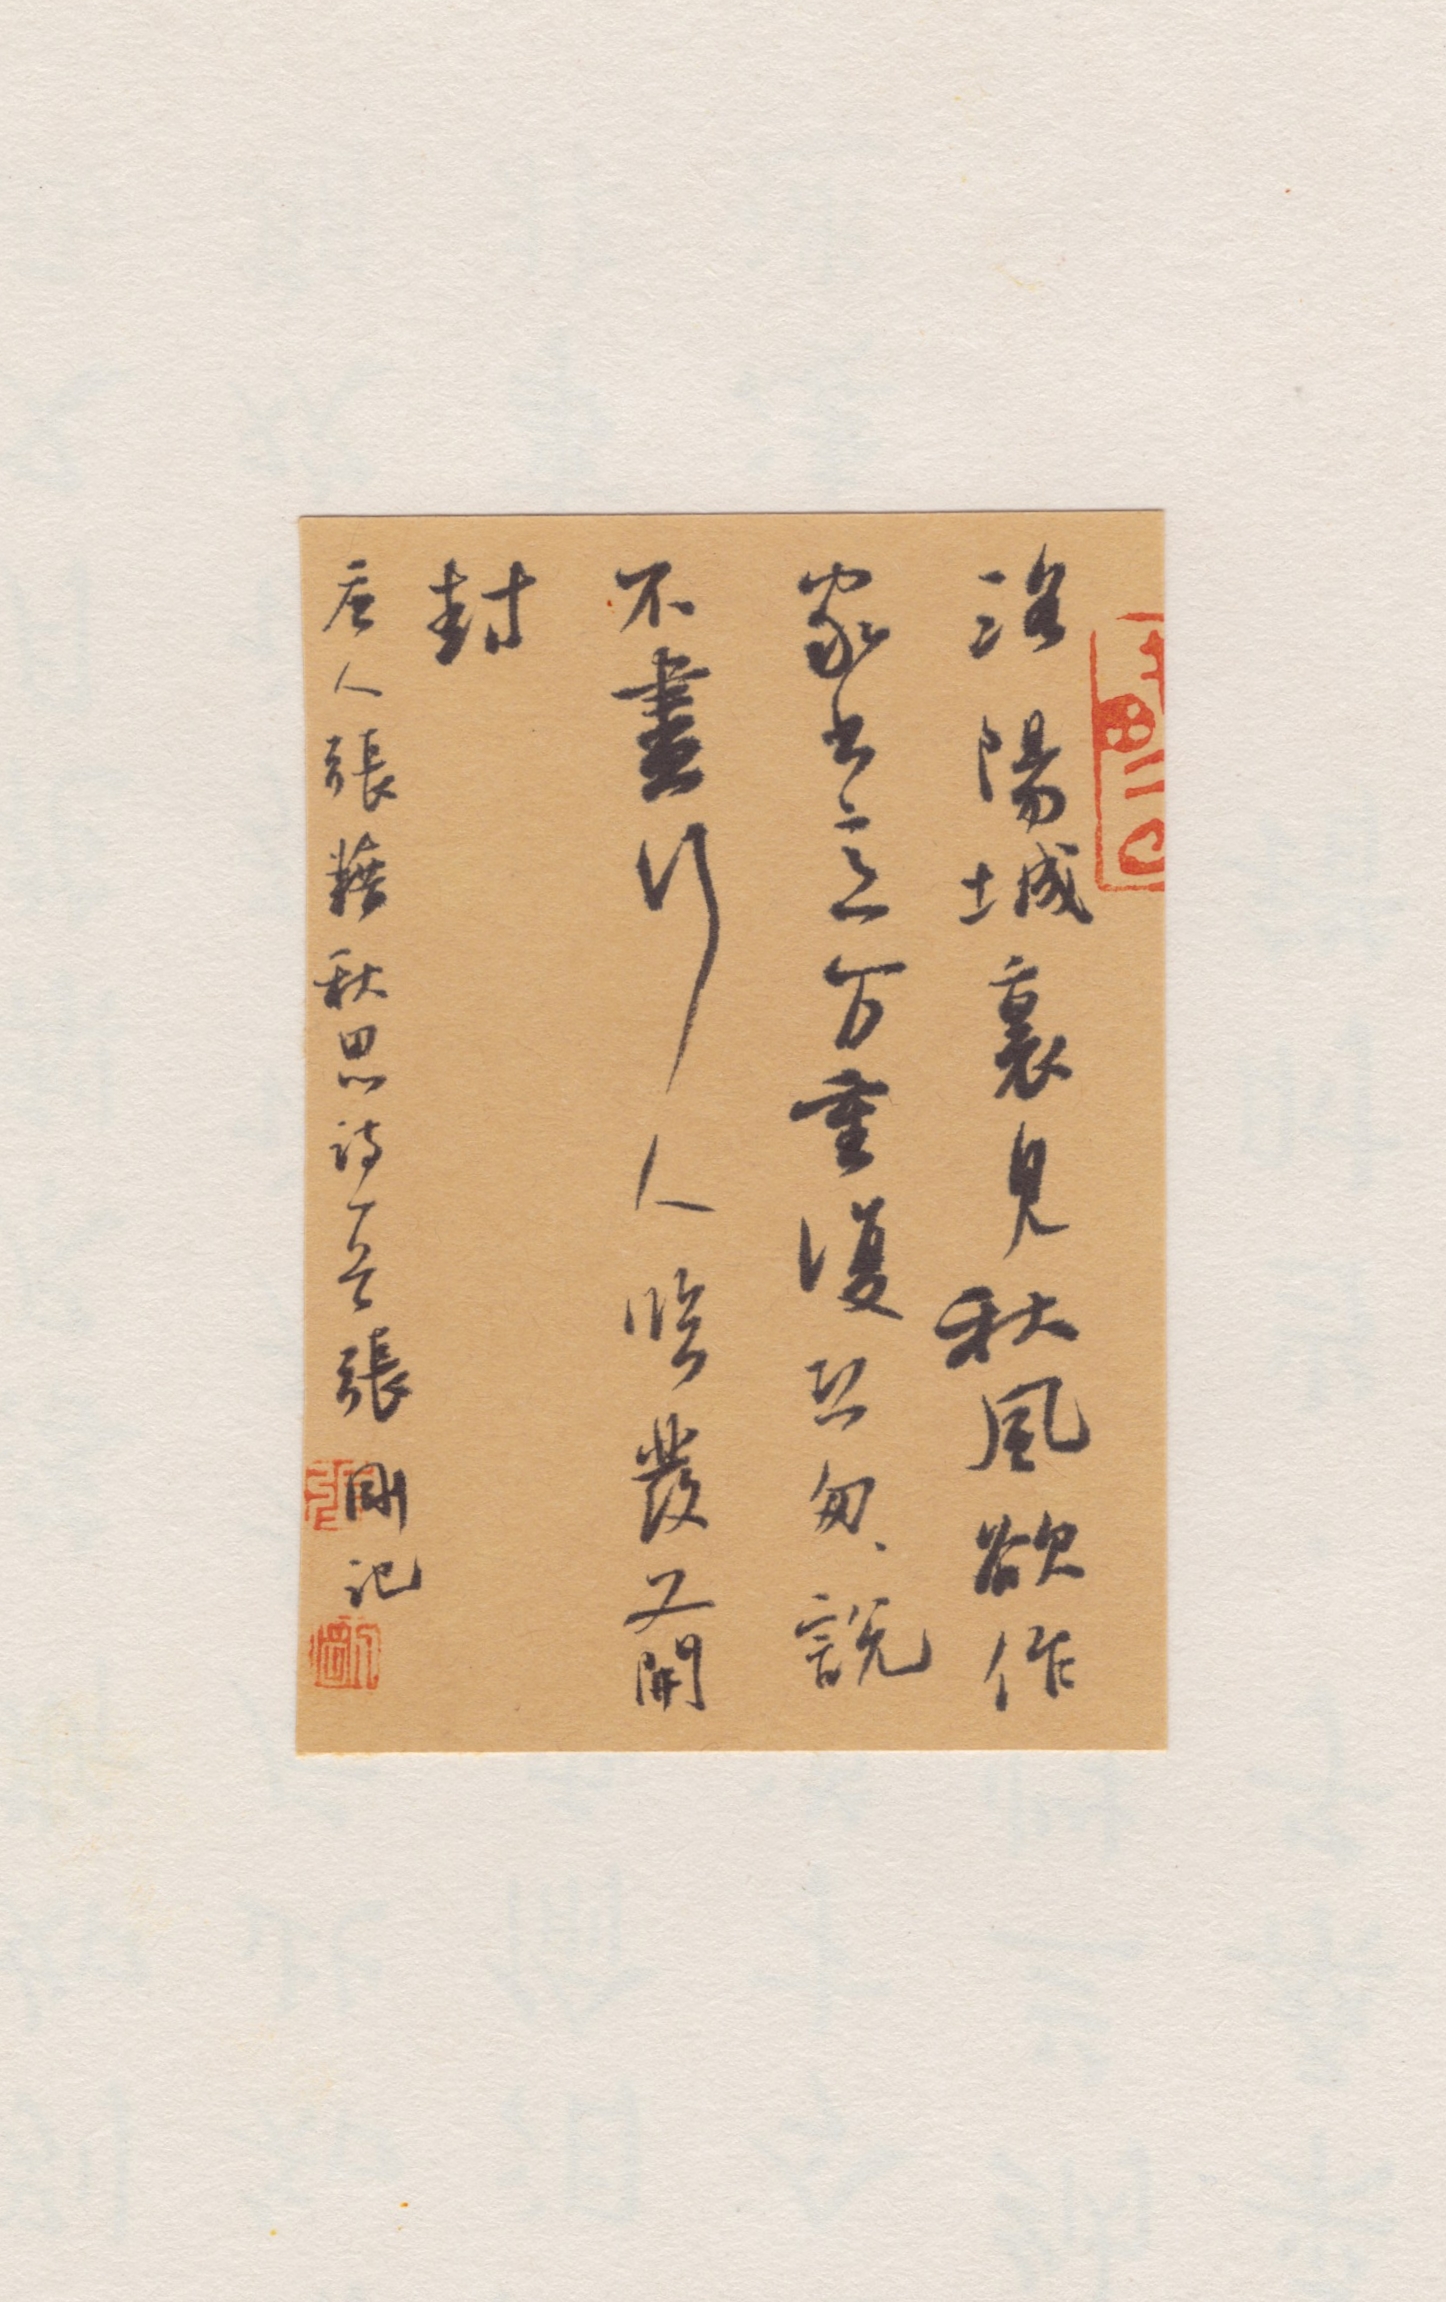 洛陽城裏見秋風欲作
家書意万重復恐匆、說
不盡行人臨發又開
封
唐人張籍秋思詩一首張剛記